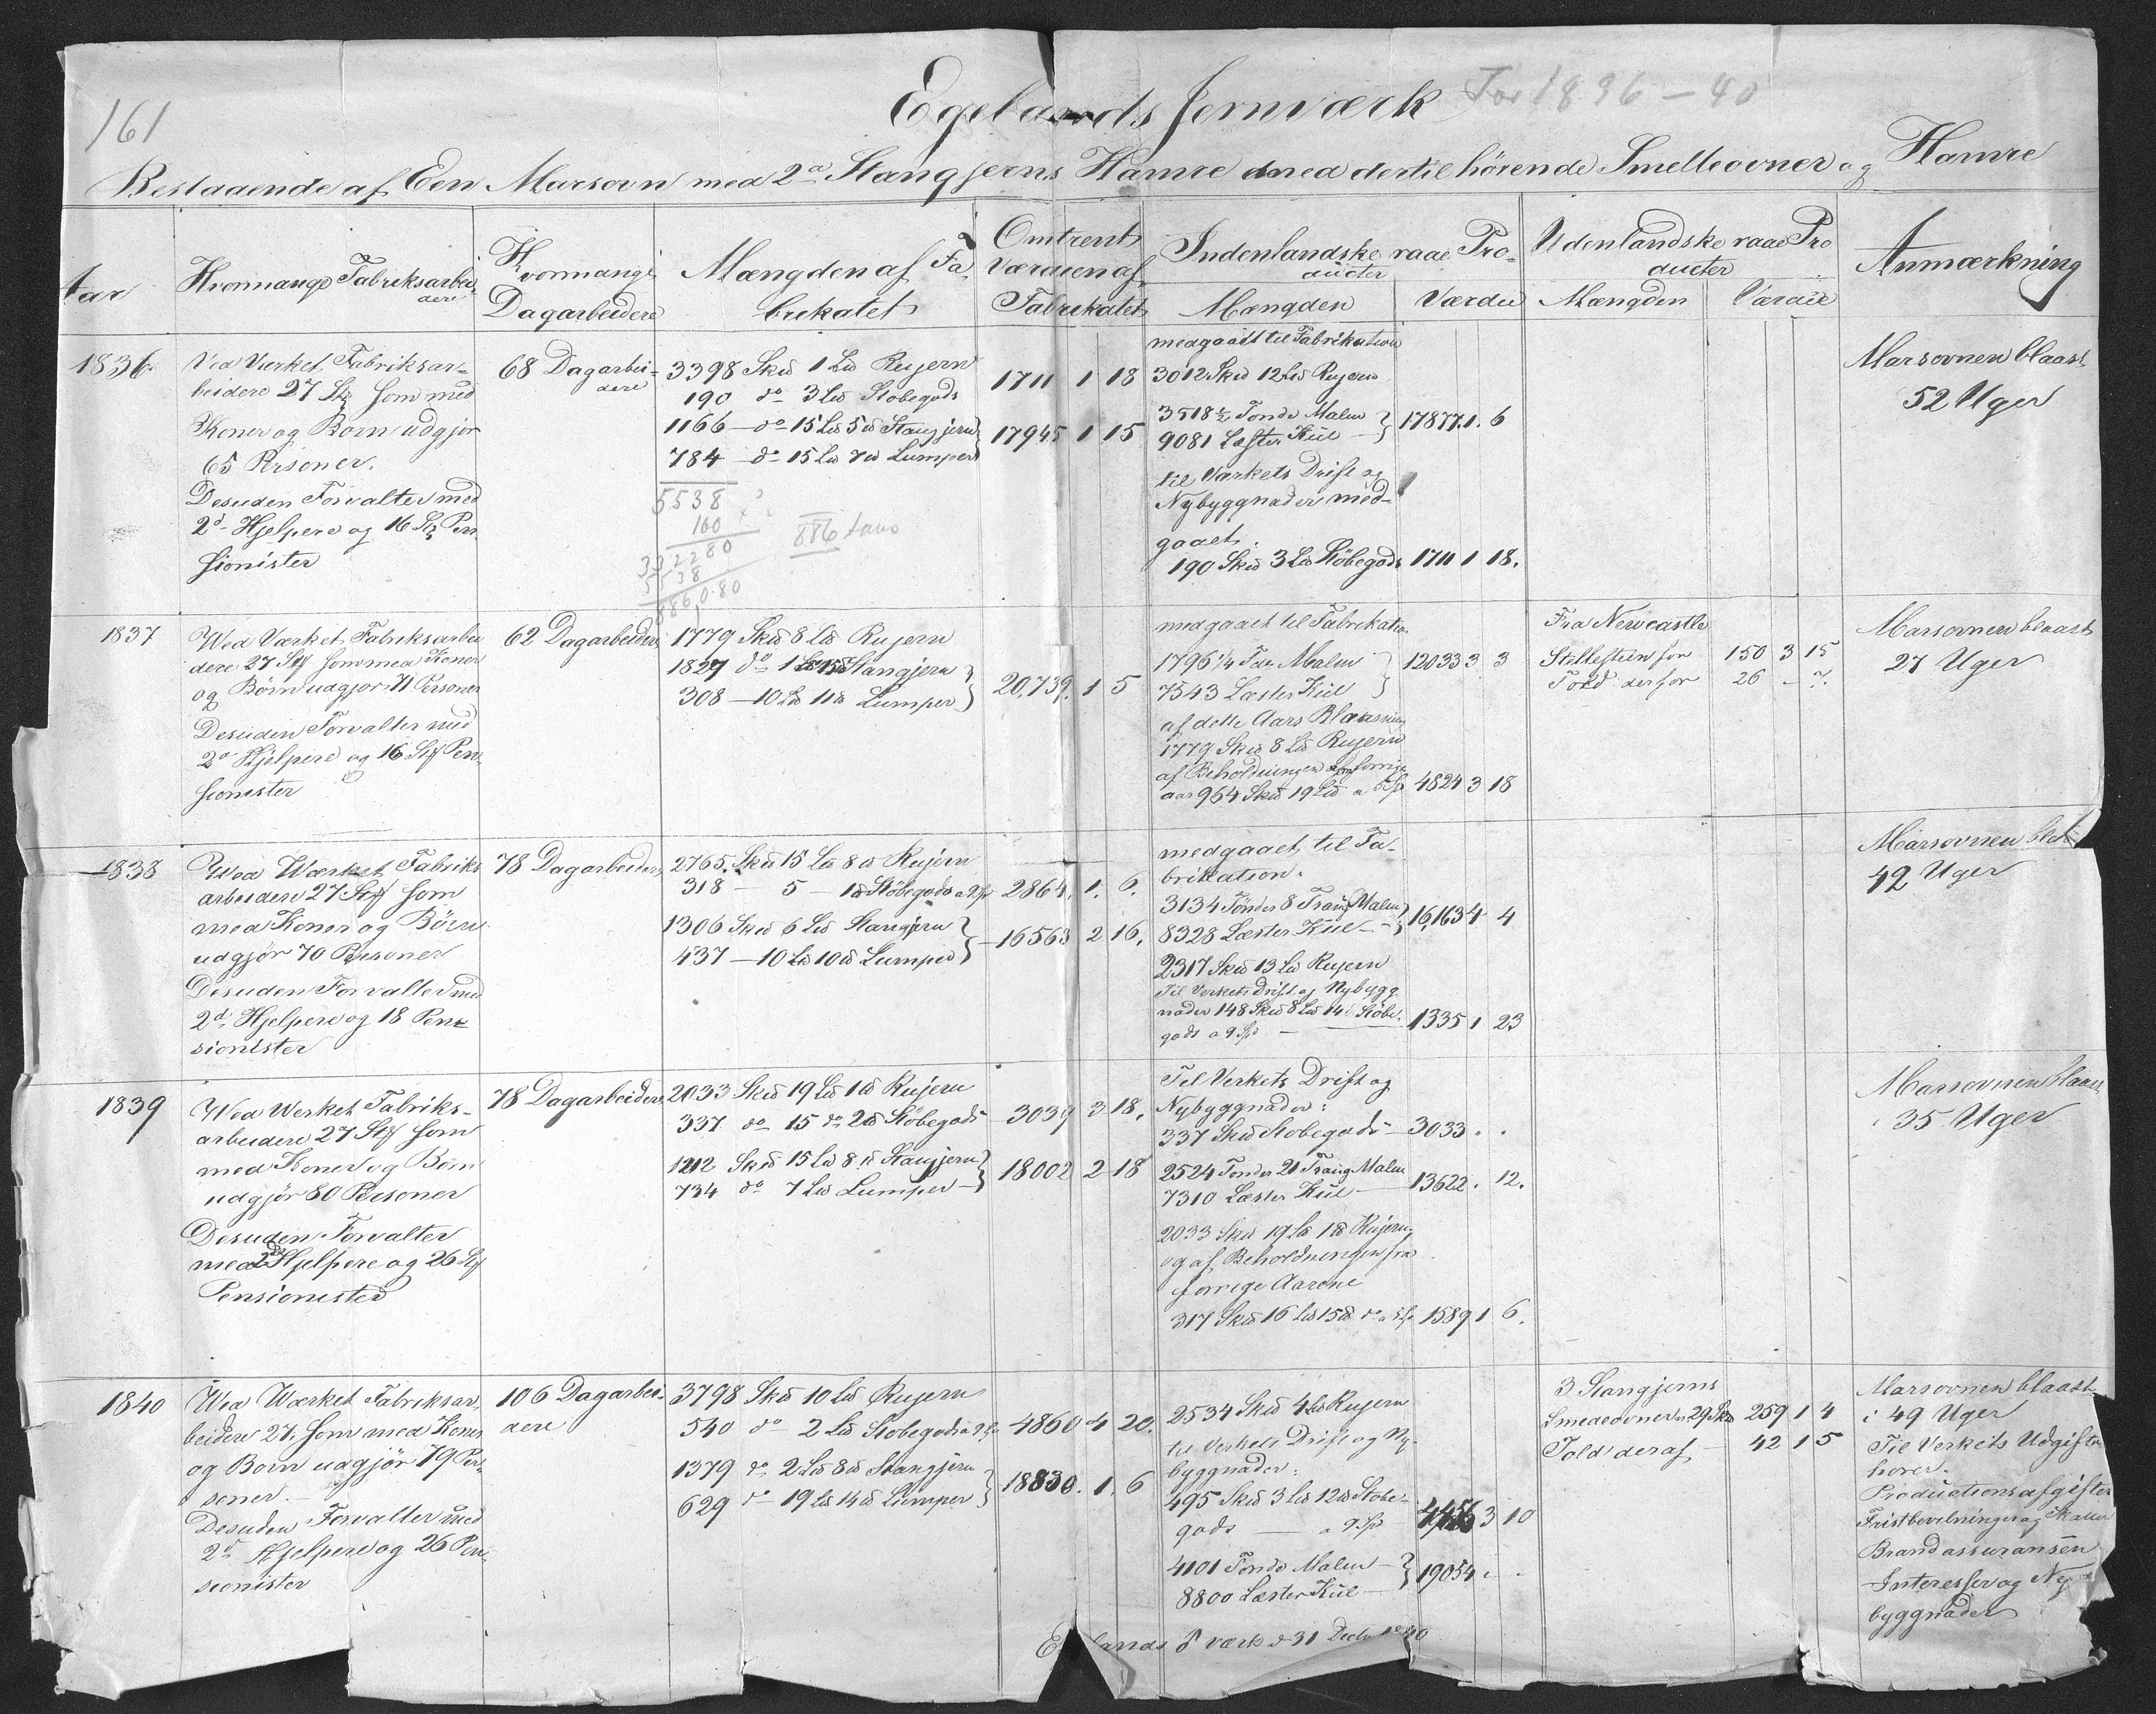 161
Egelands Jernværk For 1836-40
Bestaaende af Een Marsovn med 2de Stangjerns Hamre med dertil hörende Smelteovner og Hamre
Aar
Hvormange Fabriksarbei
dere
Hvormange
Dagarbeidere
Mængden af Fa
brikatet
Omtrent
Værdien af
Fabrikatet
Indenlandske raae Pro-
ducter
Mængden
Værdie
Udenlandske raae Pro
ducter
Mængden
Værdie
Anmærkning
1836
Ved Værket Fabriksar-
beidere 27 Stk som med
Koner og Børn udgjør
65 Personer.
Desuden Forvalter med
2d Hjelpere og 16 Stk Pen
sionister
68 Dagarbei-
dere
3398 Skd 1 Ld Rujern
190 do 3 Ld Støbegods
1166 - do 15 Ld 5 d Stangjern
784 - do 15 Ld 7 d Lumper
5538
160
332280
5538
8860.80
886 tons
1711 1 18
17945 1 15
medgaaet til Fabrikation
3012 Skd 12 Ld Rujern
3518½ Tønde Malm
9081 Læster Kül
17877. 1. 6
til Værkets Drift og
Nybyggnader med-
gaaet:
190 Skd 3 Ld Støbegods 1711 1 18.
Marsovnen blaast
52 Uger
1837
Wed Værket Fabriksarbei
dere 27 Stk som med Koner
og Børn udgjør 71 Personer
Desuden Forvalter med
2d Hjelpere og 16 Stk Pen
sionister
62 Dagarbeidere
1779 Skd 8 Ld Rujern
1827 do 1 Ld 15 d Stangjern
308 - 10 Ld 11 d Lumper
20,739. 1 5
medgaaet til Fabrikation
1796¼ Tde Malm
7543 Læster Kül
12033 3 3
af dette Aars Blaasning
1779 Skd 8 Ld Rujern
af Beholdningen forrige
aar 964 Skd 19 Ld a 5 Sp 4824 3 18
Fra Newcastle
Stellesteen for 150 3 15
Told derfor 26 - 7.
Marsovnen blaast
27 Uger
1838
Wed Wærket Fabriks
arbeidere 27 Stk som
med Koner og Börn
udgjör 70 Personer
Desuden Forvalter med
2d Hjelpere og 18 Pen
sionister
78 Dagarbeidere
2765 Skd 15 Ld 8 d Rujern
318 - 5 - 1 d Støbegods a 9 Sp
1306 Skd 6 Ld Stangjern
437 - 10 Ld 10 d Lumper
2864. 1. 6.
16563 2 16.
medgaaet til Fa-
brikation.
3134 Tönder 8 Trang Malm
8328 Læster Kül
16,163 4 4
2317 Skd 13 Ld Rujern
Til Verkets Drift og Nybygg
nader 148 Skd 8 Ld 14 d Støbe-
gods a 9 Sp
1335 1 23
Marsovnen
42 Uger
1839
Wed Werket Fabriks-
arbeidere 27 Stk som
med Koner og Børn
udgjör 80 Personer
Desuden Forvalter
med 2de Hjelpere og 26 Stk
Pensionister
78 Dagarbeidere
2033 Skd 19 Ld 1 d Rujern
337 do 15 do 2 d Støbegods
1212 Skd 15 Ld 8 d Stangjern
734 do 7 Ld Lumper
3039 3 18.
18002 2 18
Til Verkets Drift og
Nybyggnader:
337 Skd Støbegods - 3033 . .
2524 Tønder 21 Trang Malm
7310 Læster Kül
13622 . 12.
2033 Skd 19 Ld 1 d Rujern
og af Beholdningen fra
forrige Aarene
317 Skd 16 Ld 15 d do a 5 Sp 1589 1 6.
Marsovnen blaast
35 Uger
1840
Wed Wærket Fabriksar-
beidere 27, som med Koner
og Børn udgjör 79 Per-
soner.
Desuden Forvalter med
2d Hjelpere og 26 Pen-
sionister
106 Dagarbei-
dere
3798 Skd 10 Ld Rujern
540 do 2 Ld Støbegods a 9 Sp
1379 do 2 Ld 8 d Stangjern
629 do 19 Ld 14 d Lumper
4860 4 20.
18830. 1. 6
2534 Skd 4 Ld Rujern
til Verkets Drift og Ny-
byggnader:
495 Skd 3 Ld 12 d Støbe-
gods a 9 Sp
4456 3 10
4101 Tønde Malm
8800 Læster Kül
19054 . .
3 Stangjerns
Smedeovner 29 Skd 259 1 4
Told deraf 42 1 5
Marsovnen blaast
i 49 Uger
Til Verkets Udgifter
hører.
Productionsafgifter
Fristbevilninger og Skatter
Brandassuransen
Interesser og Ny-
byggnader
værk d 31 Decbr 1840